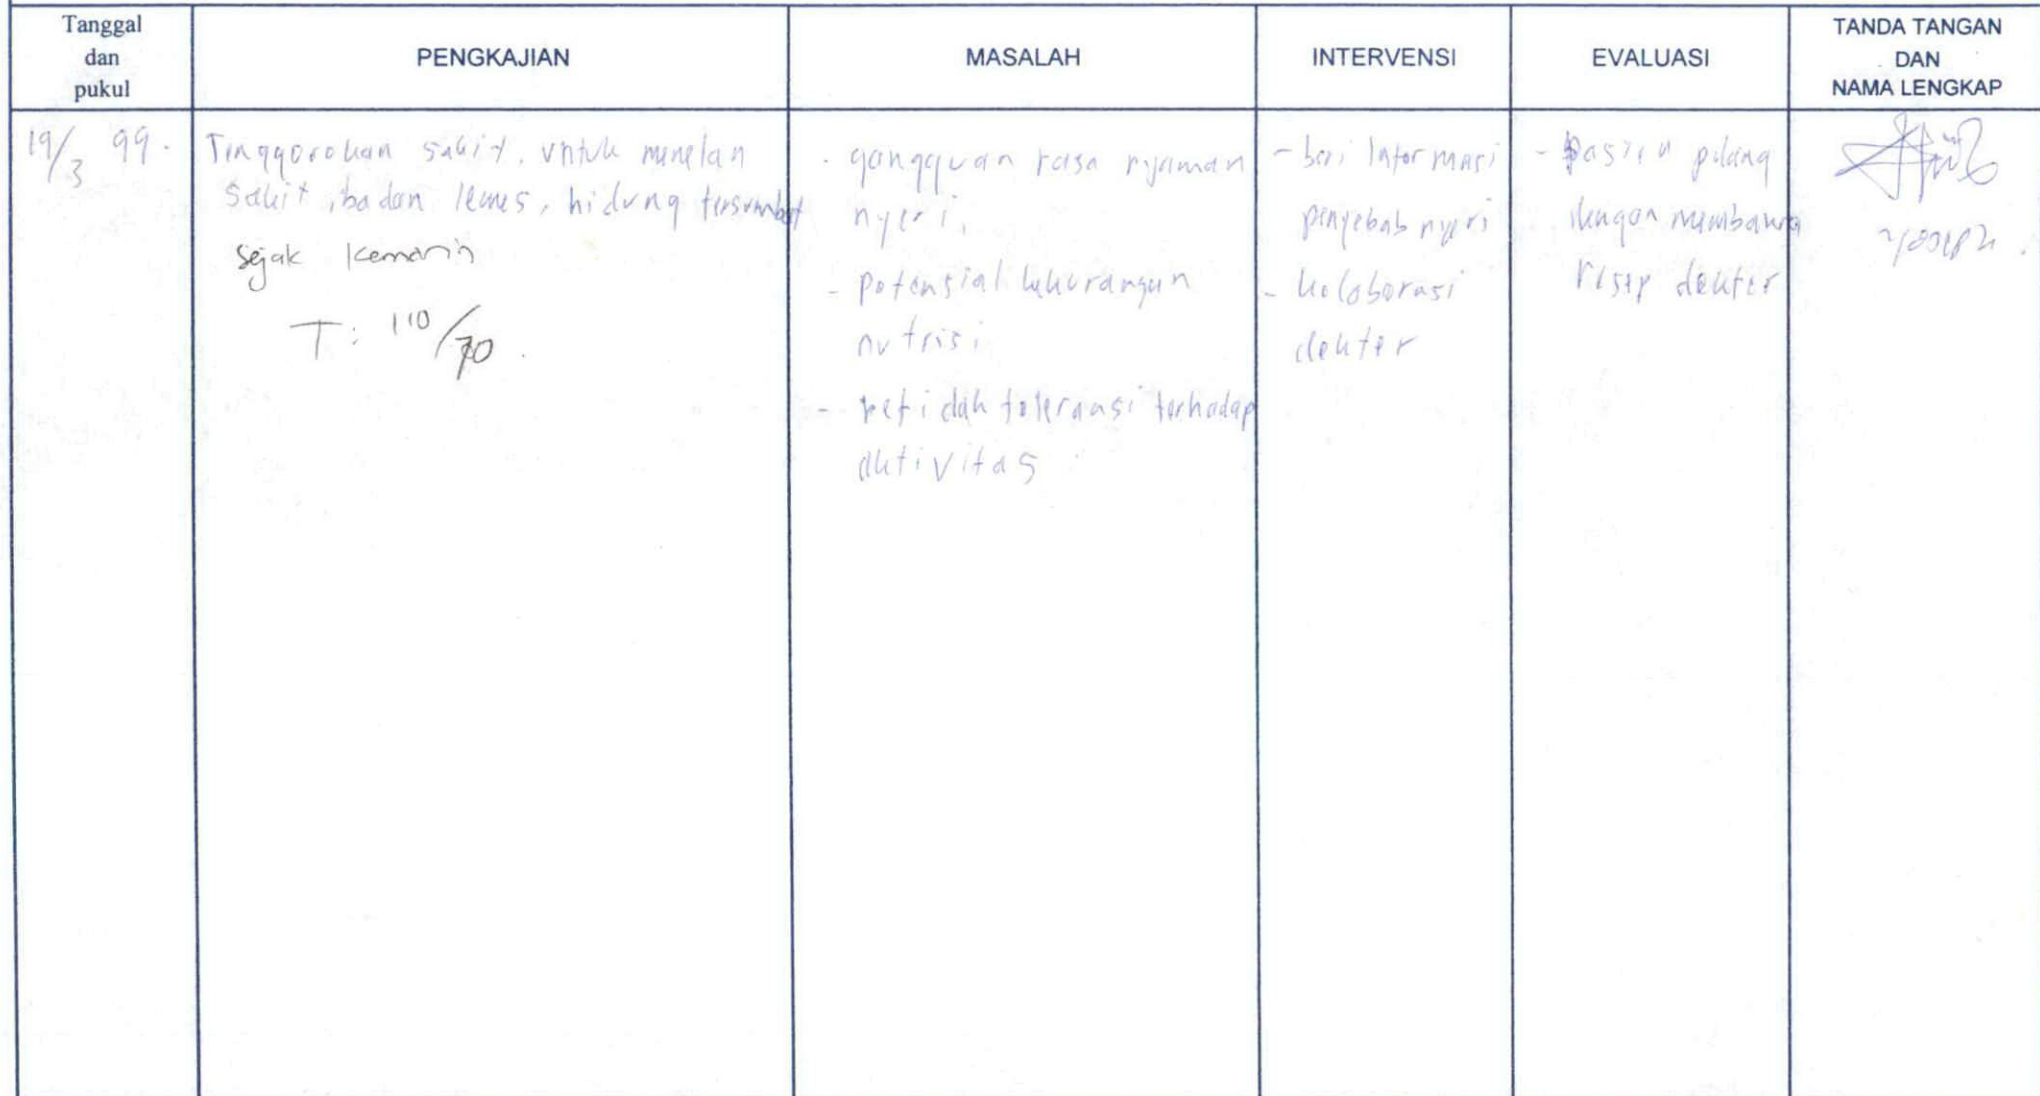 Tanggal
dan
pukul
PENGKAJIAN
MASALAH
INTERVENSI
EVALUASI
TANDA TANGAN
DAN
NAMA LENGKAP
19/3 99.
Tenggorokan sakit, untuk menelan
sakit, badan lemes, hidung tersumbat
sejak kemarin
T: 110/70.
- gangguan rasa nyaman
nyeri.
- potensial kekurangan
nutrisi
- ketidak toleransi terhadap
aktivitas
- beri Informasi
penyebab nyeri
- kolaborasi
dokter
- pasien pulang
dengan membawa
resep dokter